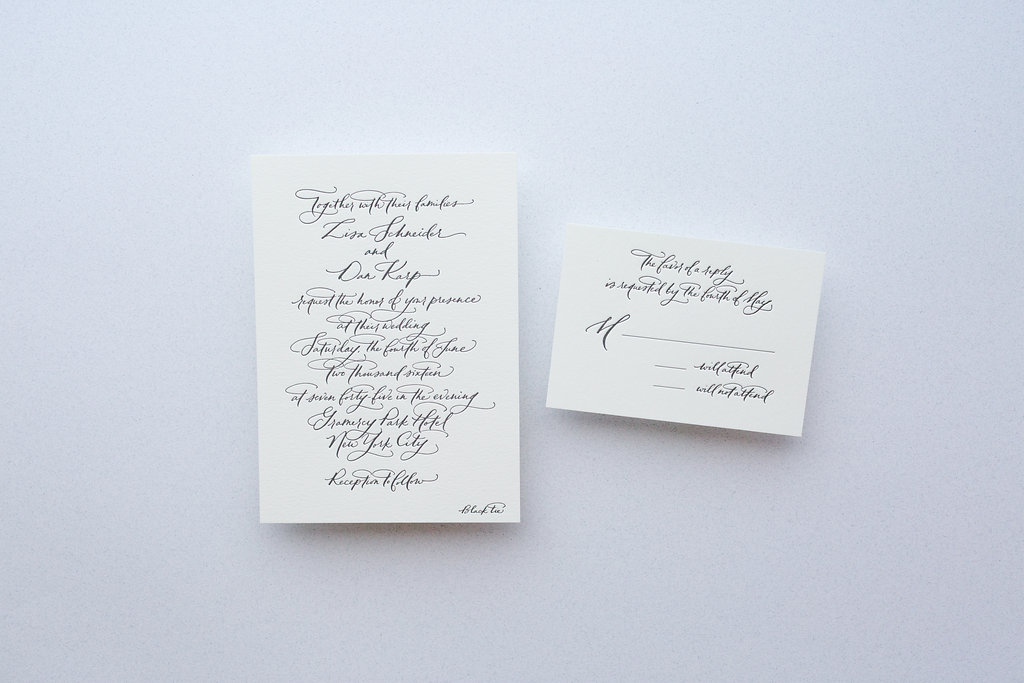 Together with their families
Lisa Schneider
and
Dan Karp
request the honor of your presence
at their wedding
Saturday, the fourth of June
two thousand sixteen
at seven forty-five in the evening
Gramercy Park Hotel
New York City
Reception to follow
Black tie
The favor of a reply
is requested by the fourth of May
M
will attend
will not attend